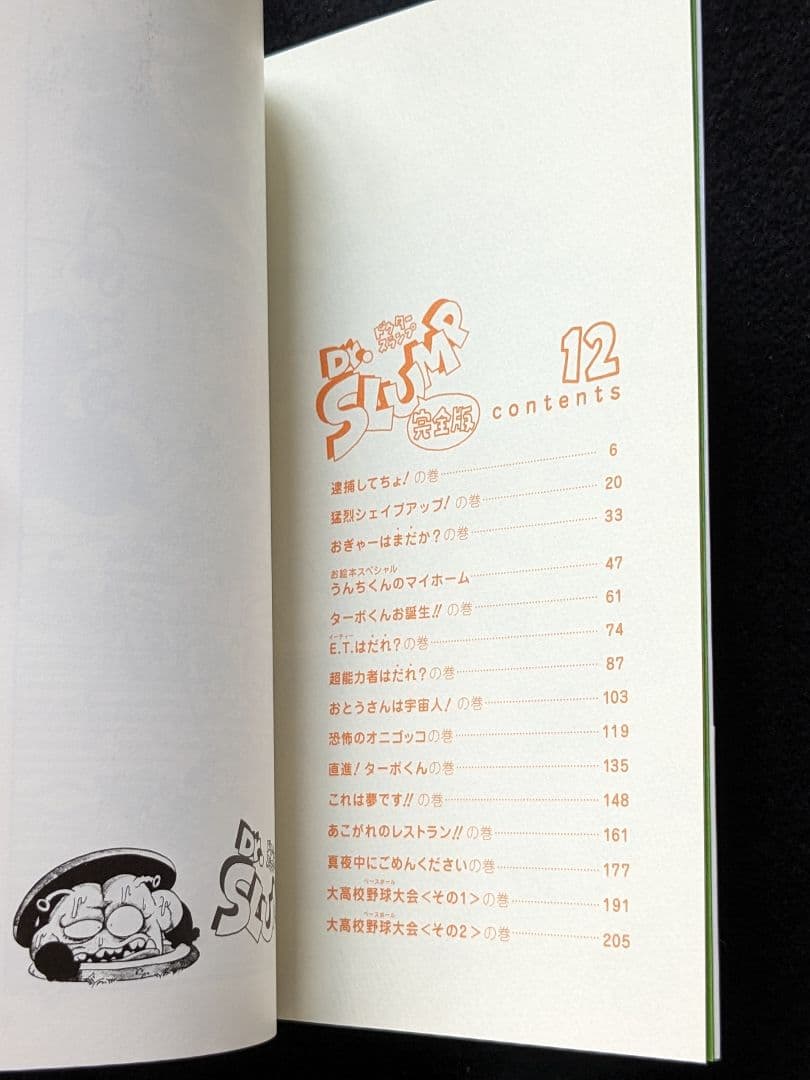 Dr.
SLUMP
ドクター
スランプ
完全版
12
contents
逮捕してちょ!の巻 6
猛烈シェイプアップ!の巻 20
おぎゃーはまだか?の巻 33
お絵本スペシャル
うんちくんのマイホーム 47
ターボくんお誕生!!の巻 61
イーティー
E.T.はだれ?の巻 74
超能力者はだれ?の巻 87
おとうさんは宇宙人!の巻 103
恐怖のオニゴッコの巻 119
直進!ターボくんの巻 135
これは夢です!!の巻 148
あこがれのレストラン!!の巻 161
真夜中にごめんくださいの巻 177
ベースボール
大高校野球大会<その1>の巻 191
ベースボール
大高校野球大会<その2>の巻 205
Dr.
SLU